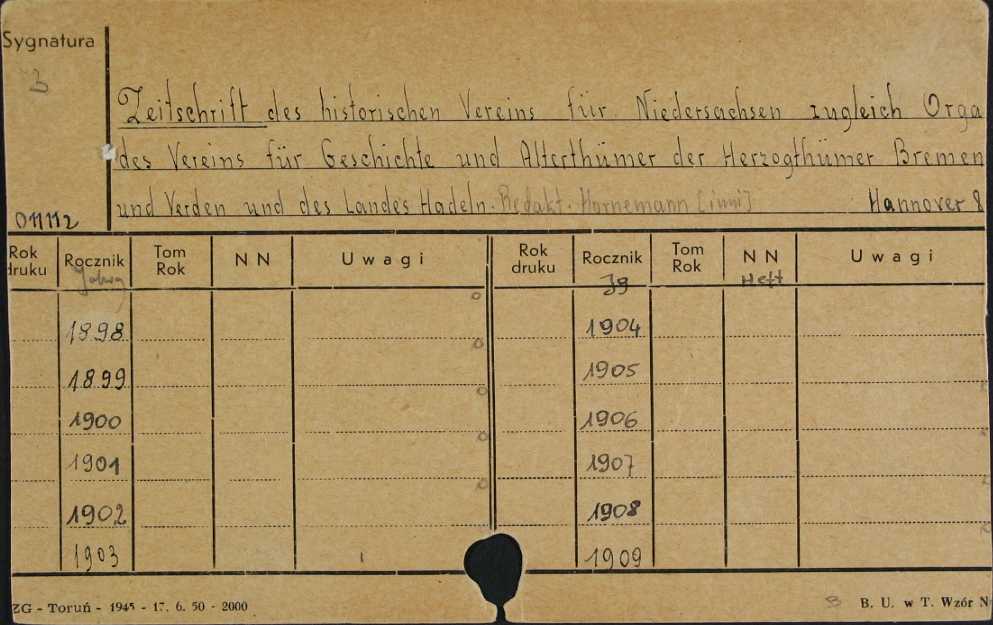 Sygnatura
Zeitschrift des historischen Vereins für Niedersachsen zugleich Orga
des Vereins für Geschichte und Alterthümer der Herzogthümer Bremen
und Verden und des Landes Hadeln. Redakt. Hornemann [inni] Hannover 8
01112
Rok druku Rocznik Tom Rok NN Uwagi Rok druku Rocznik Tom Rok NN Uwagi
Jg Heft
1898 1904
1899 1905
1900 1906
1901 1907
1902 1908
1903 1909
ZG - Toruń - 1945 - 17. 6. 50 - 2000 B. U. w T. Wzór N